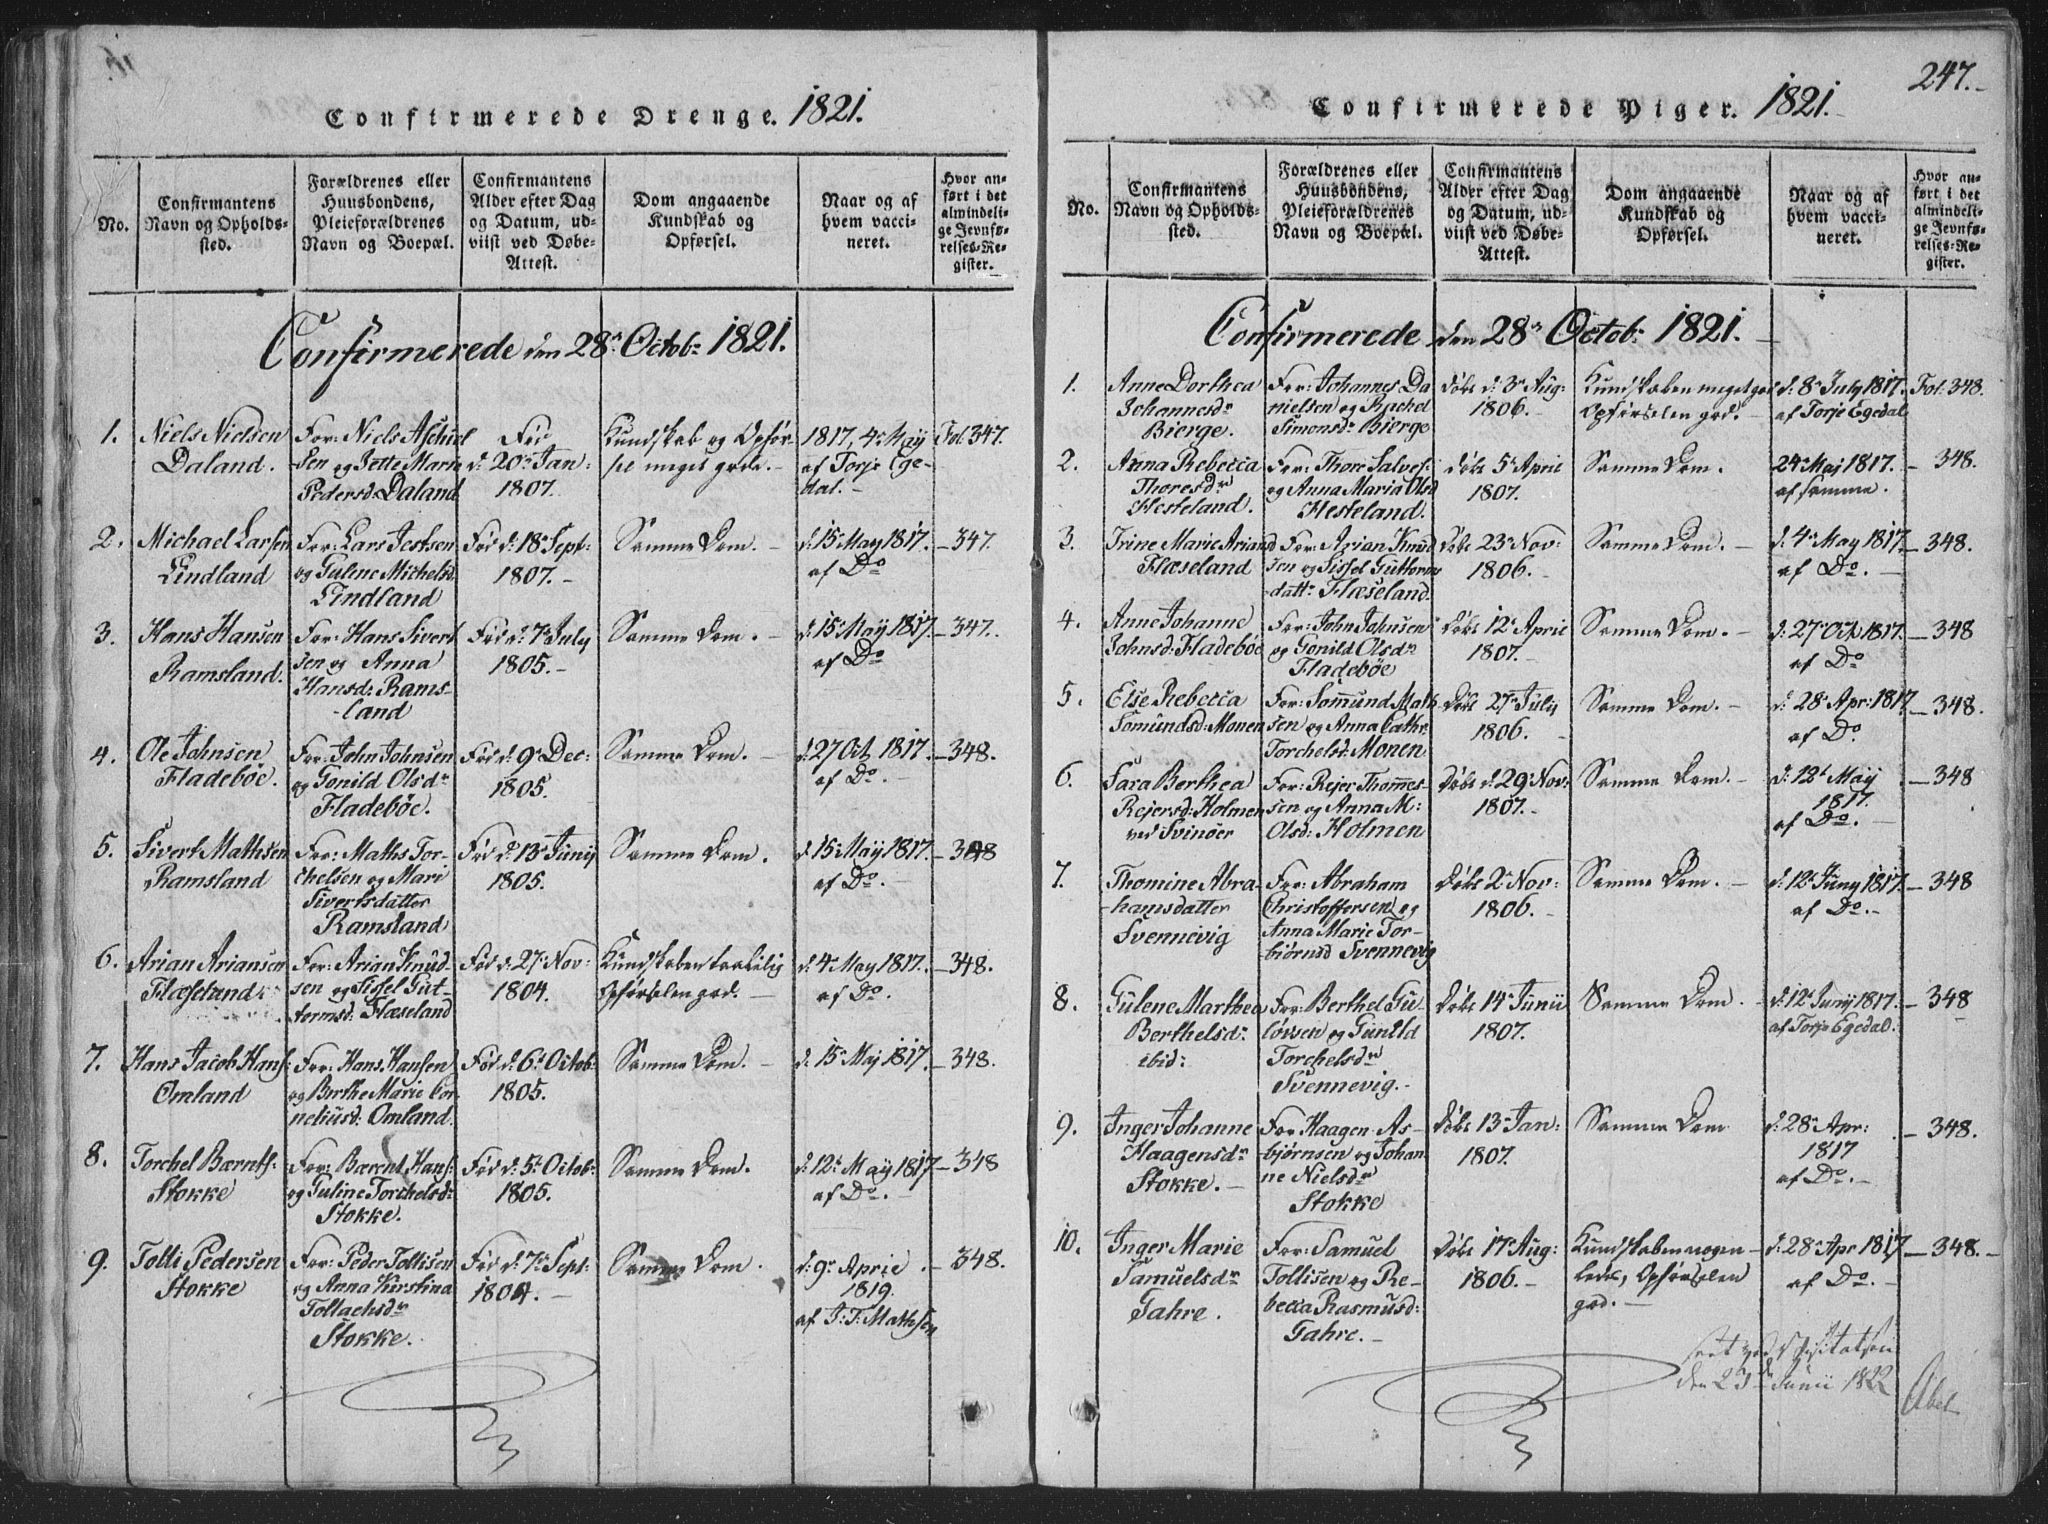 Confirmerede Drenge. 1821.
No.
Confirmantens
Navn og Opholds-
sted.
Forældrenes eller
Huusbondens,
Pleieforældrenes
Navn og Boepæl.
Confirmantens
Alder efter Dag
og Datum, ud-
viist ved Døbe-
Attest.
Dom angaaende
Kundskab og
Opførsel.
Naar og af
hvem vacci-
neret.
Hvor an-
ført i det
almindeli-
ge Jevnfø-
relses-Re-
gister.
Confirmerede den 28n Octob: 1821.
1.
Niels Nielsen
Daland.
For: Niels Aschuel
sen og Jette Marie
Pedersd: Daland
Fød
d: 20n Jan:
1807.
Kundskab og Opfør-
sel meget gode.
1817, 4n May
af Torje Ege-
dal.
Fol: 347.
2.
Michael Larsen
Lindland
For: Lars Jestsen
og Guline Michelsd:
Lindland
Fød d: 18n Sept:
1807.
Samme Dom.
d: 15n May 1817.
af Do
347.
3.
Hans Hansen
Ramsland.
For: Hans Sivert
sen og Anna
Hansd: Rams-
land
Fød d: 7n July
1805.
Samme Dom.
d: 15n May 1817.
af Do
347.
4.
Ole Johnsen
Fladebøe.
For: John Johnsen
og Gonild Olsdr
Fladebøe.
Fød d: 9n Dec:
1805.
Samme Dom.
d: 27 Oct 1817.
af Do.
348.
5.
Sivert Mathsen
Ramsland
For: Maths Tor-
chelsen og Mari
Sivertsdatter
Ramsland
Fød d: 13n Junij
1805.
Samme Dom.
d: 15n May 1817.
af Do.
348
6.
Arian Ariansen
Flæseland.
For: Arian Knud-
sen og Sissel Gut-
tormsd: Flæseland
Fød d: 27n Nov:
1804.
Kundskaben taalelig
Opførselen god.
d: 4n May 1817.
af Do.
348.
7.
Hans Jacob Hans:
Omland
For: Hans Hansen
og Berthe Marie Cor-
neliusd: Omland.
Fød d: 6n Octob:
1805.
Samme Dom.
d: 15n Maj 1817.
348.
8.
Torchel Bærnts:
Stokke
For: Bærent Hans:
og Guline Torchelsd:
Stokke.
Fød d: 5n Octob:
1805.
Samme Dom.
d: 12n May 1817
af Do.
348
9.
Tolli Pedersen
Stokke
For: Peder Tollisen
og Anna Kirstina
Tollachsdr
Stokke.
Fød d: 7n Sept:
1804.
Samme Dom.
d: 9n Aprie
1819.
af J: T: Mathsen
348.
247.
Confirmerede Piger. 1821.
No.
Confirmantens
Navn og Opholds-
sted.
Forældrenes eller
Huusbondens,
Pleieforældrenes
Navn og Boepæl.
Confirmantens
Alder efter Dag
og Datum, ud-
viist ved Døbe-
Attest.
Dom angaaende
Kundskab og
Opførsel.
Naar og af
hvem vacci-
neret.
Hvor an-
ført i det
almindeli-
ge Jevnfø-
relses-Re-
gister.
Confirmerede den 28n Octob: 1821.
1.
Anne Dorthea
Johannesdr
Bierge.
For: Johannes Da
nielsen og Rachel
Simonsdr Bierge
Døbt d: 3n Aug:
1806.
Kundskaben meget god
Opførselen god.
d: 8n July 1817.
af Torje Egedal
Fol: 348.
2.
Anna Rebecca
Thoresdr
Hesteland.
For: Thore Salves:
og Anna Maria Olsd
Hesteland.
Døbt 5n April
1807.
Samme Dom.
24n Maj 1817.
af samme.
348.
3.
Trine Marie Ariand
Flæseland
For: Arian Knud
sen og Sissel Guttorms
dattr Flæseland.
Døbt 23n Nov:
1806.
Samme Dom.
d: 4n May 1817
af Do.
348.
4.
Anne Johanne
Johnsd: Fladebøe
For: John Johnsen
og Gonild Olsdr
Fladebøe
Døbt 12n April
1807.
Samme Dom.
d: 27n Oct 1817.
af Do
348
5.
Else Rebecca
Somundsd: Monen
For: Sommund Math
sen og Anna Cathr:
Torchelsd: Monen
Døbt 27n July
1806.
Samme Dom.
d: 28n Apr: 1817
af Do.
348.
6.
Sara Berthea
Rejersd: Holmen
ved Svinøer
For: Rejer Thommes-
sen og Anna M:
Olsd: Holmen
Døbt d: 29n Nov:
1807.
Samme Dom.
d: 12n May
1817.
af Do.
348
7.
Thomine Abra-
hamsdatter
Svennevig
For: Abraham
Christoffersen og
Anna Marie Tor-
bjørnsd Svennevig
Døbt 2n Nov:
1806.
Samme Dom.
d: 12n Juny 1817.
af Do.
348
8.
Gulene Marthea
Berthelsdr
ibid:
For: Berthel Gu-
lovsen og Gunild
Torchelsdr
Svennevig.
Døbt 14n Junii
1807.
Samme Dom.
d: 12n Junij 1817.
af Torje Egedal.
348
9.
Inger Johanne
Haagensdr
Stokke.
For Haagen As-
bjørnsen og Johan
ne Nielsdr
Stokke
Døbt 13n Jan:
1807.
Samme Dom
d: 28n Apr:
1817
af Do.
348.
10.
Inger Marie
Samuelsdr
Gahre.
For: Samuel
Tollisen og Re-
becca Rasmusd:
Gahre.
Døbt 17n Aug:
1806.
Kundskaben nogen-
ledes, Opførselen
god.
d: 28n Apr 1817
af Do.
348.
seet ved Visitatsen
den 23de Junii 1822
Abel